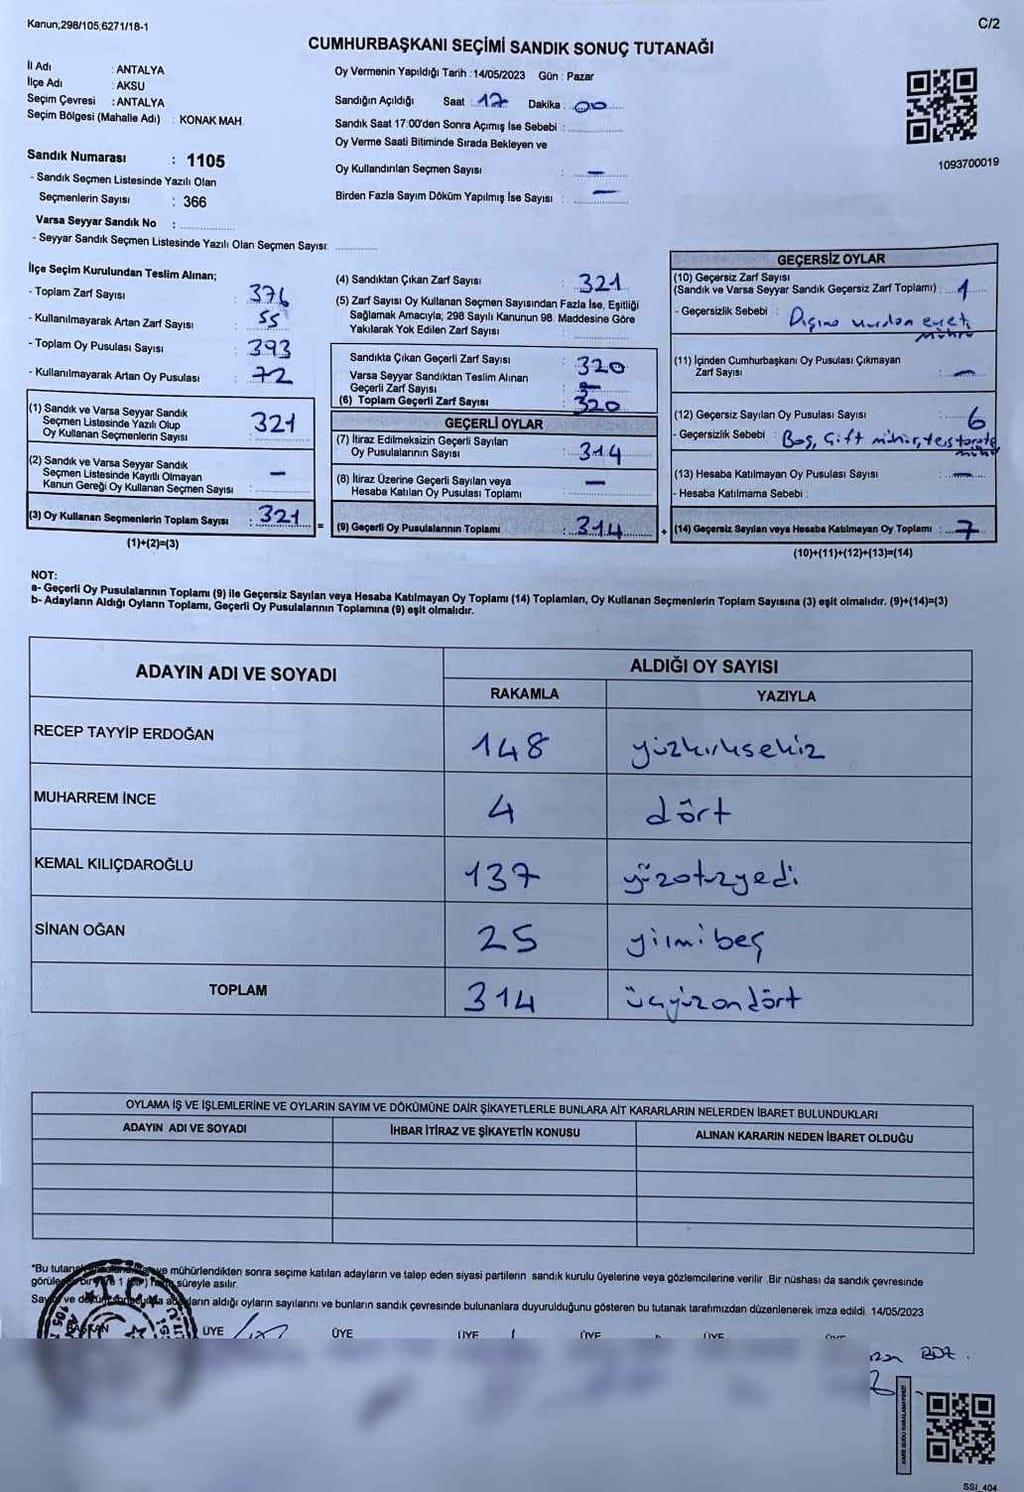 Kanun,298/105,6271/18-1
C/2
CUMHURBAŞKANI SEÇİMİ SANDIK SONUÇ TUTANAĞI
İl Adı : ANTALYA
İlçe Adı : AKSU
Seçim Çevresi : ANTALYA
Seçim Bölgesi (Mahalle Adı) : KONAK MAH.
Oy Vermenin Yapıldığı Tarih : 14/05/2023 Gün : Pazar
Sandığın Açıldığı Saat : 17 Dakika : 00
Sandık Saat 17:00'den Sonra Açımış İse Sebebi :
Oy Verme Saati Bitiminde Sırada Bekleyen ve
Oy Kullandırılan Seçmen Sayısı : —
Birden Fazla Sayım Döküm Yapılmış İse Sayısı : —
1093700019
Sandık Numarası : 1105
- Sandık Seçmen Listesinde Yazılı Olan
Seçmenlerin Sayısı : 366
Varsa Seyyar Sandık No :
- Seyyar Sandık Seçmen Listesinde Yazılı Olan Seçmen Sayısı:
İlçe Seçim Kurulundan Teslim Alınan;
- Toplam Zarf Sayısı : 376
- Kullanılmayarak Artan Zarf Sayısı : 55
- Toplam Oy Pusulası Sayısı : 393
- Kullanılmayarak Artan Oy Pusulası : 72
(1) Sandık ve Varsa Seyyar Sandık
Seçmen Listesinde Yazılı Olup
Oy Kullanan Seçmenlerin Sayısı : 321
(2) Sandık ve Varsa Seyyar Sandık
Seçmen Listesinde Kayıtlı Olmayan
Kanun Gereği Oy Kullanan Seçmen Sayısı : —
(3) Oy Kullanan Seçmenlerin Toplam Sayısı : 321 =
(1)+(2)=(3)
(4) Sandıktan Çıkan Zarf Sayısı : 321
(5) Zarf Sayısı Oy Kullanan Seçmen Sayısından Fazla İse, Eşitliği
Sağlamak Amacıyla; 298 Sayılı Kanunun 98. Maddesine Göre
Yakılarak Yok Edilen Zarf Sayısı :
Sandıkta Çıkan Geçerli Zarf Sayısı : 320
Varsa Seyyar Sandıktan Teslim Alınan
Geçerli Zarf Sayısı : —
(6) Toplam Geçerli Zarf Sayısı : 320
GEÇERLİ OYLAR
(7) İtiraz Edilmeksizin Geçerli Sayılan
Oy Pusulalarının Sayısı : 314
(8) İtiraz Üzerine Geçerli Sayılan veya
Hesaba Katılan Oy Pusulası Toplamı : —
(9) Geçerli Oy Pusulalarının Toplamı : 314 +
GEÇERSİZ OYLAR
(10) Geçersiz Zarf Sayısı
(Sandık ve Varsa Seyyar Sandık Geçersiz Zarf Toplamı) : 1
- Geçersizlik Sebebi : Dışına vurulan evet
mührü
(11) İçinden Cumhurbaşkanı Oy Pusulası Çıkmayan
Zarf Sayısı : —
(12) Geçersiz Sayılan Oy Pusulası Sayısı : 6
- Geçersizlik Sebebi : Boş, Çift mühür, ters tarafa
mühür
(13) Hesaba Katılmayan Oy Pusulası Sayısı : —
- Hesaba Katılmama Sebebi :
(14) Geçersiz Sayılan veya Hesaba Katılmayan Oy Toplamı : 7
(10)+(11)+(12)+(13)=(14)
NOT:
a- Geçerli Oy Pusulalarının Toplamı (9) ile Geçersiz Sayılan veya Hesaba Katılmayan Oy Toplamı (14) Toplamları, Oy Kullanan Seçmenlerin Toplam Sayısına (3) eşit olmalıdır. (9)+(14)=(3)
b- Adayların Aldığı Oyların Toplamı, Geçerli Oy Pusulalarının Toplamına (9) eşit olmalıdır.
ADAYIN ADI VE SOYADI
ALDIĞI OY SAYISI
RAKAMLA YAZIYLA
RECEP TAYYİP ERDOĞAN 148 yüzkırksekiz
MUHARREM İNCE 4 dört
KEMAL KILIÇDAROĞLU 137 yüzotuzyedi
SİNAN OĞAN 25 yirmibeş
TOPLAM 314 üçyüzondört
OYLAMA İŞ VE İŞLEMLERİNE VE OYLARIN SAYIM VE DÖKÜMÜNE DAİR ŞİKAYETLERLE BUNLARA AİT KARARLARIN NELERDEN İBARET BULUNDUKLARI
ADAYIN ADI VE SOYADI İHBAR İTİRAZ VE ŞİKAYETİN KONUSU ALINAN KARARIN NEDEN İBARET OLDUĞU
*Bu mühürlendikten sonra seçime katılan adayların ve talep eden siyasi partilerin sandık kurulu üyelerine veya gözlemcilerine verilir. Bir nüshası da sandık çevresinde
süreyle asılır.
aldığı oyların sayılarını ve bunların sandık çevresinde bulunanlara duyurulduğunu gösteren bu tutanak tarafımızdan düzenlenerek imza edildi. 14/05/2023
BAŞKAN ÜYE ÜYE ÜYE ÜYE ÜYE
SSİ_404